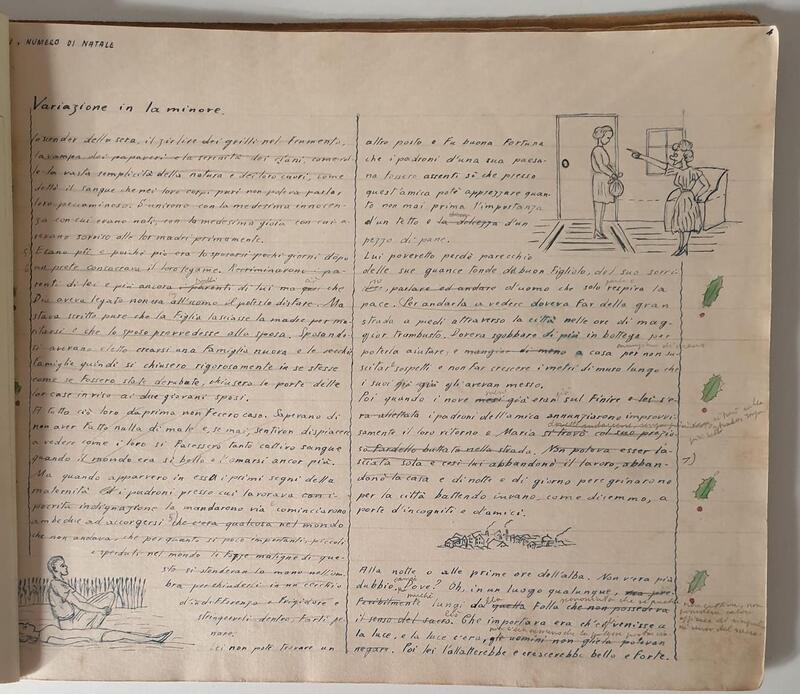 NUMERO DI NATALE
4
Variazione in la minore.
della sera, il zirlire dei grilli nel frumento,
la vampa dei papaveri e la serenità dei
la vasta semplicità della natura e dei loro cuori, come
detta il sangue che nei loro corpi puri non poteva parlar
loro peccaminoso. S'unirono con la medesima innocen-
za con cui erano nati, con la medesima gioia con cui a-
vevano sorriso alle lor madri primamente.
Erano pii e poichè più era lo sposarsi pochi giorni dopo
un prete consacrava il loro legame. Recriminarono i pa-
renti di lei e più ancora i parenti di lui ma che
Dio aveva legato non era all'uomo il potesse disfare. Ma
stava scritto pure che la figlia lasciasse la madre per ma-
ritarsi e che lo sposo prevvedesse alla sposa. Sposando-
si avevano eletto crearsi una famiglia nuova e le vecchie
famiglie quindi si chiusero rigorosamente in se stesse
come se fossero state derubate, chiusero le porte delle
lor case in viso ai due giovani sposi.
A tutto ciò loro da prima non fecero caso. Sapevano di
non aver fatto nulla di male e, se mai, sentivan dispiacer
a vedere come i loro si facessero tanto cattivo sangue
quando il mondo era sì bello e l'amarsi ancor più.
Ma quando apparvero in essa i primi segni della
maternità ed i padroni presso cui lavorava con i-
pocrita indignazione la mandarono via cominciarono
ambedue ad accorgersi che c'era qualcosa nel mondo
che non andava, che per quanto sì poco importanti, piccoli
e sperduti nel mondo le forze maligne di que-
sto si stendevan la mano nell'om-
bra per chiuderli in un cerchio
d'indifferenza e frigidore e
stringerveli dentro, farli pe-
nare.
Lei non potè trovare un
altro posto e fu buona fortuna
che i padroni d'una sua paesa-
na fossero assenti sì che presso
quest'amica potè apprezzare quan-
to non mai prima l'importanza
d'un tetto e la dolcezza d'un
pezzo di pane.
Lui poveretto perdè parecchio
delle sue guance tonde da buon figliolo, del suo sorri-
so, parlare ed andare d'uomo che solo respira la
pace. Per andarla a vedere doveva far della gran
strada a piedi attraverso la città nelle ore di mag-
gior trambusto. Doveva sgobbare di più in bottega per
poterla aiutare, e mangiar di meno a casa per non su-
scitar sospetti e non far crescere i metri di muro lungo che
i suoi già gli avevan messo.
Poi quando i nove mesi già eran sul finire e lei s'e-
ra allettata i padroni dell'amica annunziarono improvvi-
samente il loro ritorno e Maria si trovò col suo prezio-
so fardello buttata nella strada. Non poteva esser la-
sciata sola e così lui abbandonò il lavoro, abban-
donò la casa e di notte e di giorno peregrinarono
per la città battendo invano, come diremmo, a
porte d'incogniti e d'amici.
Alla notte o alle prime ore dell'alba. Non v'era più
dubbio. Dove? Oh, in un luogo qualunque,
feribilmente lungi da quella folla che non possedeva
il senso del sacro. Che importava era ch'egli venisse a
la luce, e la luce c'era, gli uomini non gliela potevan
negare. Poi lei l'allatterebbe e crescerebbe bello e forte.